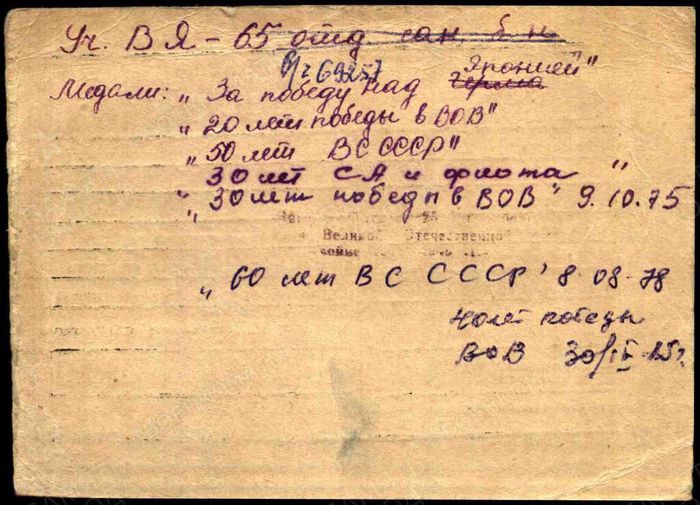 Уч. В Я - 65 отд сан. б-н
Медали: "За победу над герма Японией"
"20 лет победы в ВОВ"
"50 лет ВС СССР"
30 лет СА и флота "
"30 лет победы в ВОВ" 9.10.75
Великой Отечественной
войне
"60 лет ВС СССР" 8.08.78
40 лет победы
ВОВ